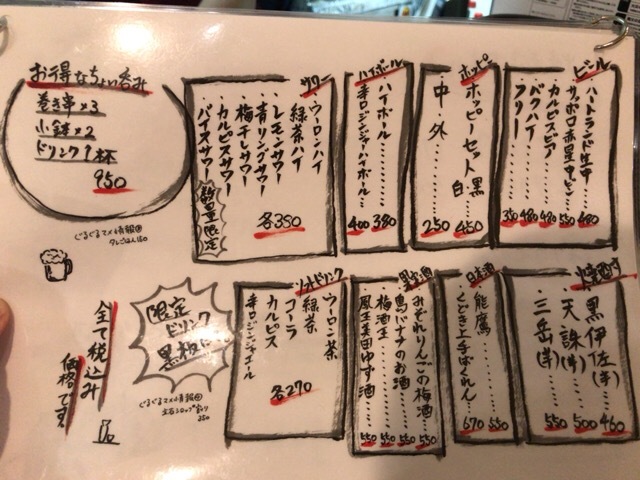 お得なちょい呑み
巻き串×3
小鉢×2
ドリンク1杯
950
ぐるぐるマメ情報①
タレごはん150
サワー
ウーロンハイ
緑茶ハイ
レモンサワー
青リンゴサワー
梅干しサワー
カルピスサワー
バイスサワー
数量限定
各350
ハイボール
ハイボール 380
辛口ジンジャーハイボール 400
ホッピー
ホッピーセット 黒 白 450
中・外 250
ビール
ハートランド生中 480
サッポロ赤星中ビン 550
カルピスビア 480
バクハイ 480
フリー 350
限定
ドリンク
黒板に
ぐるぐるマメ情報②
全て税込み
価格です。
ソフトドリンク
ウーロン茶
緑茶
コーラ
カルピス
辛口ジンジャエール
各270
果実酒
みぞれりんごの梅酒 550
島バナナのお酒 550
梅酒王 550
鳳王美田ゆず酒 550
日本酒
能鷹 550
くどき上手ばくれん 670
焼酎
黒伊佐(芋) 460
天誅(芋) 500
三岳(芋) 550